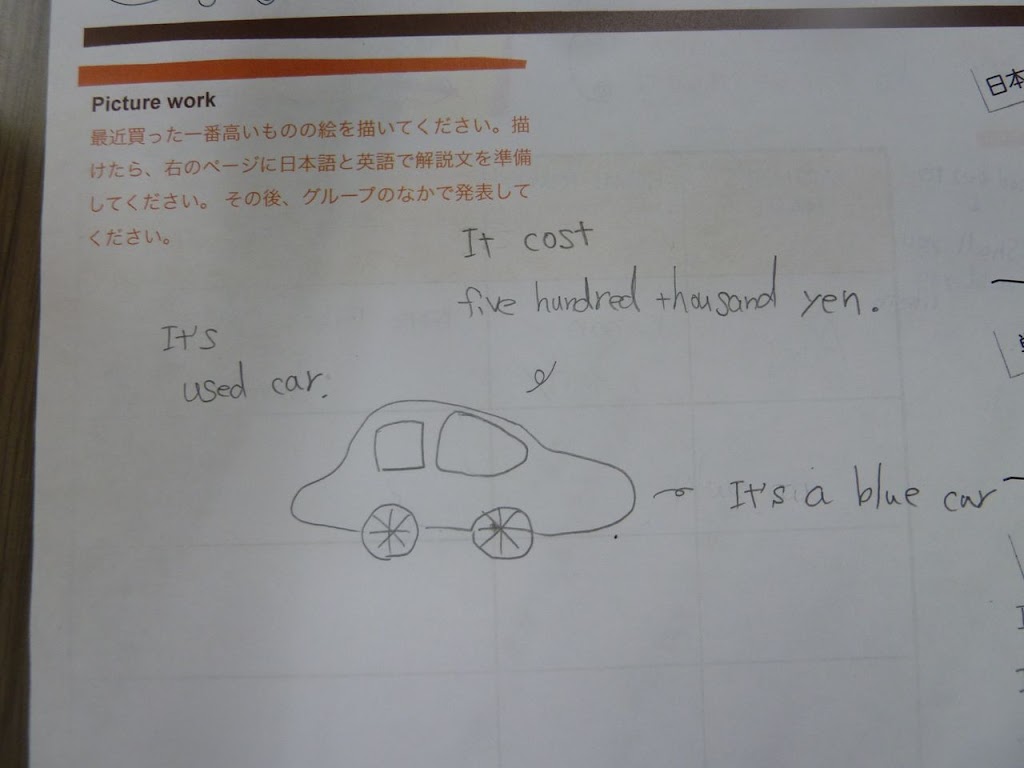 Picture work
最近買った一番高いものの絵を描いてください。描
けたら、右のページに日本語と英語で解説文を準備
してください。その後、グループのなかで発表して
ください。
It cost
five hundred thousand yen.
It's
used car.
It's a blue car
日本